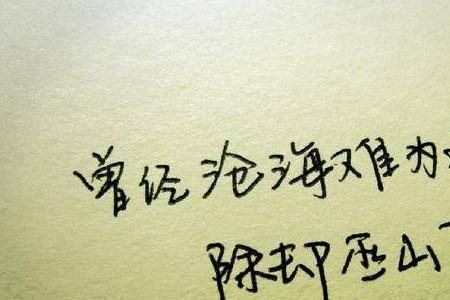 曾经沧海难为
除却巫山